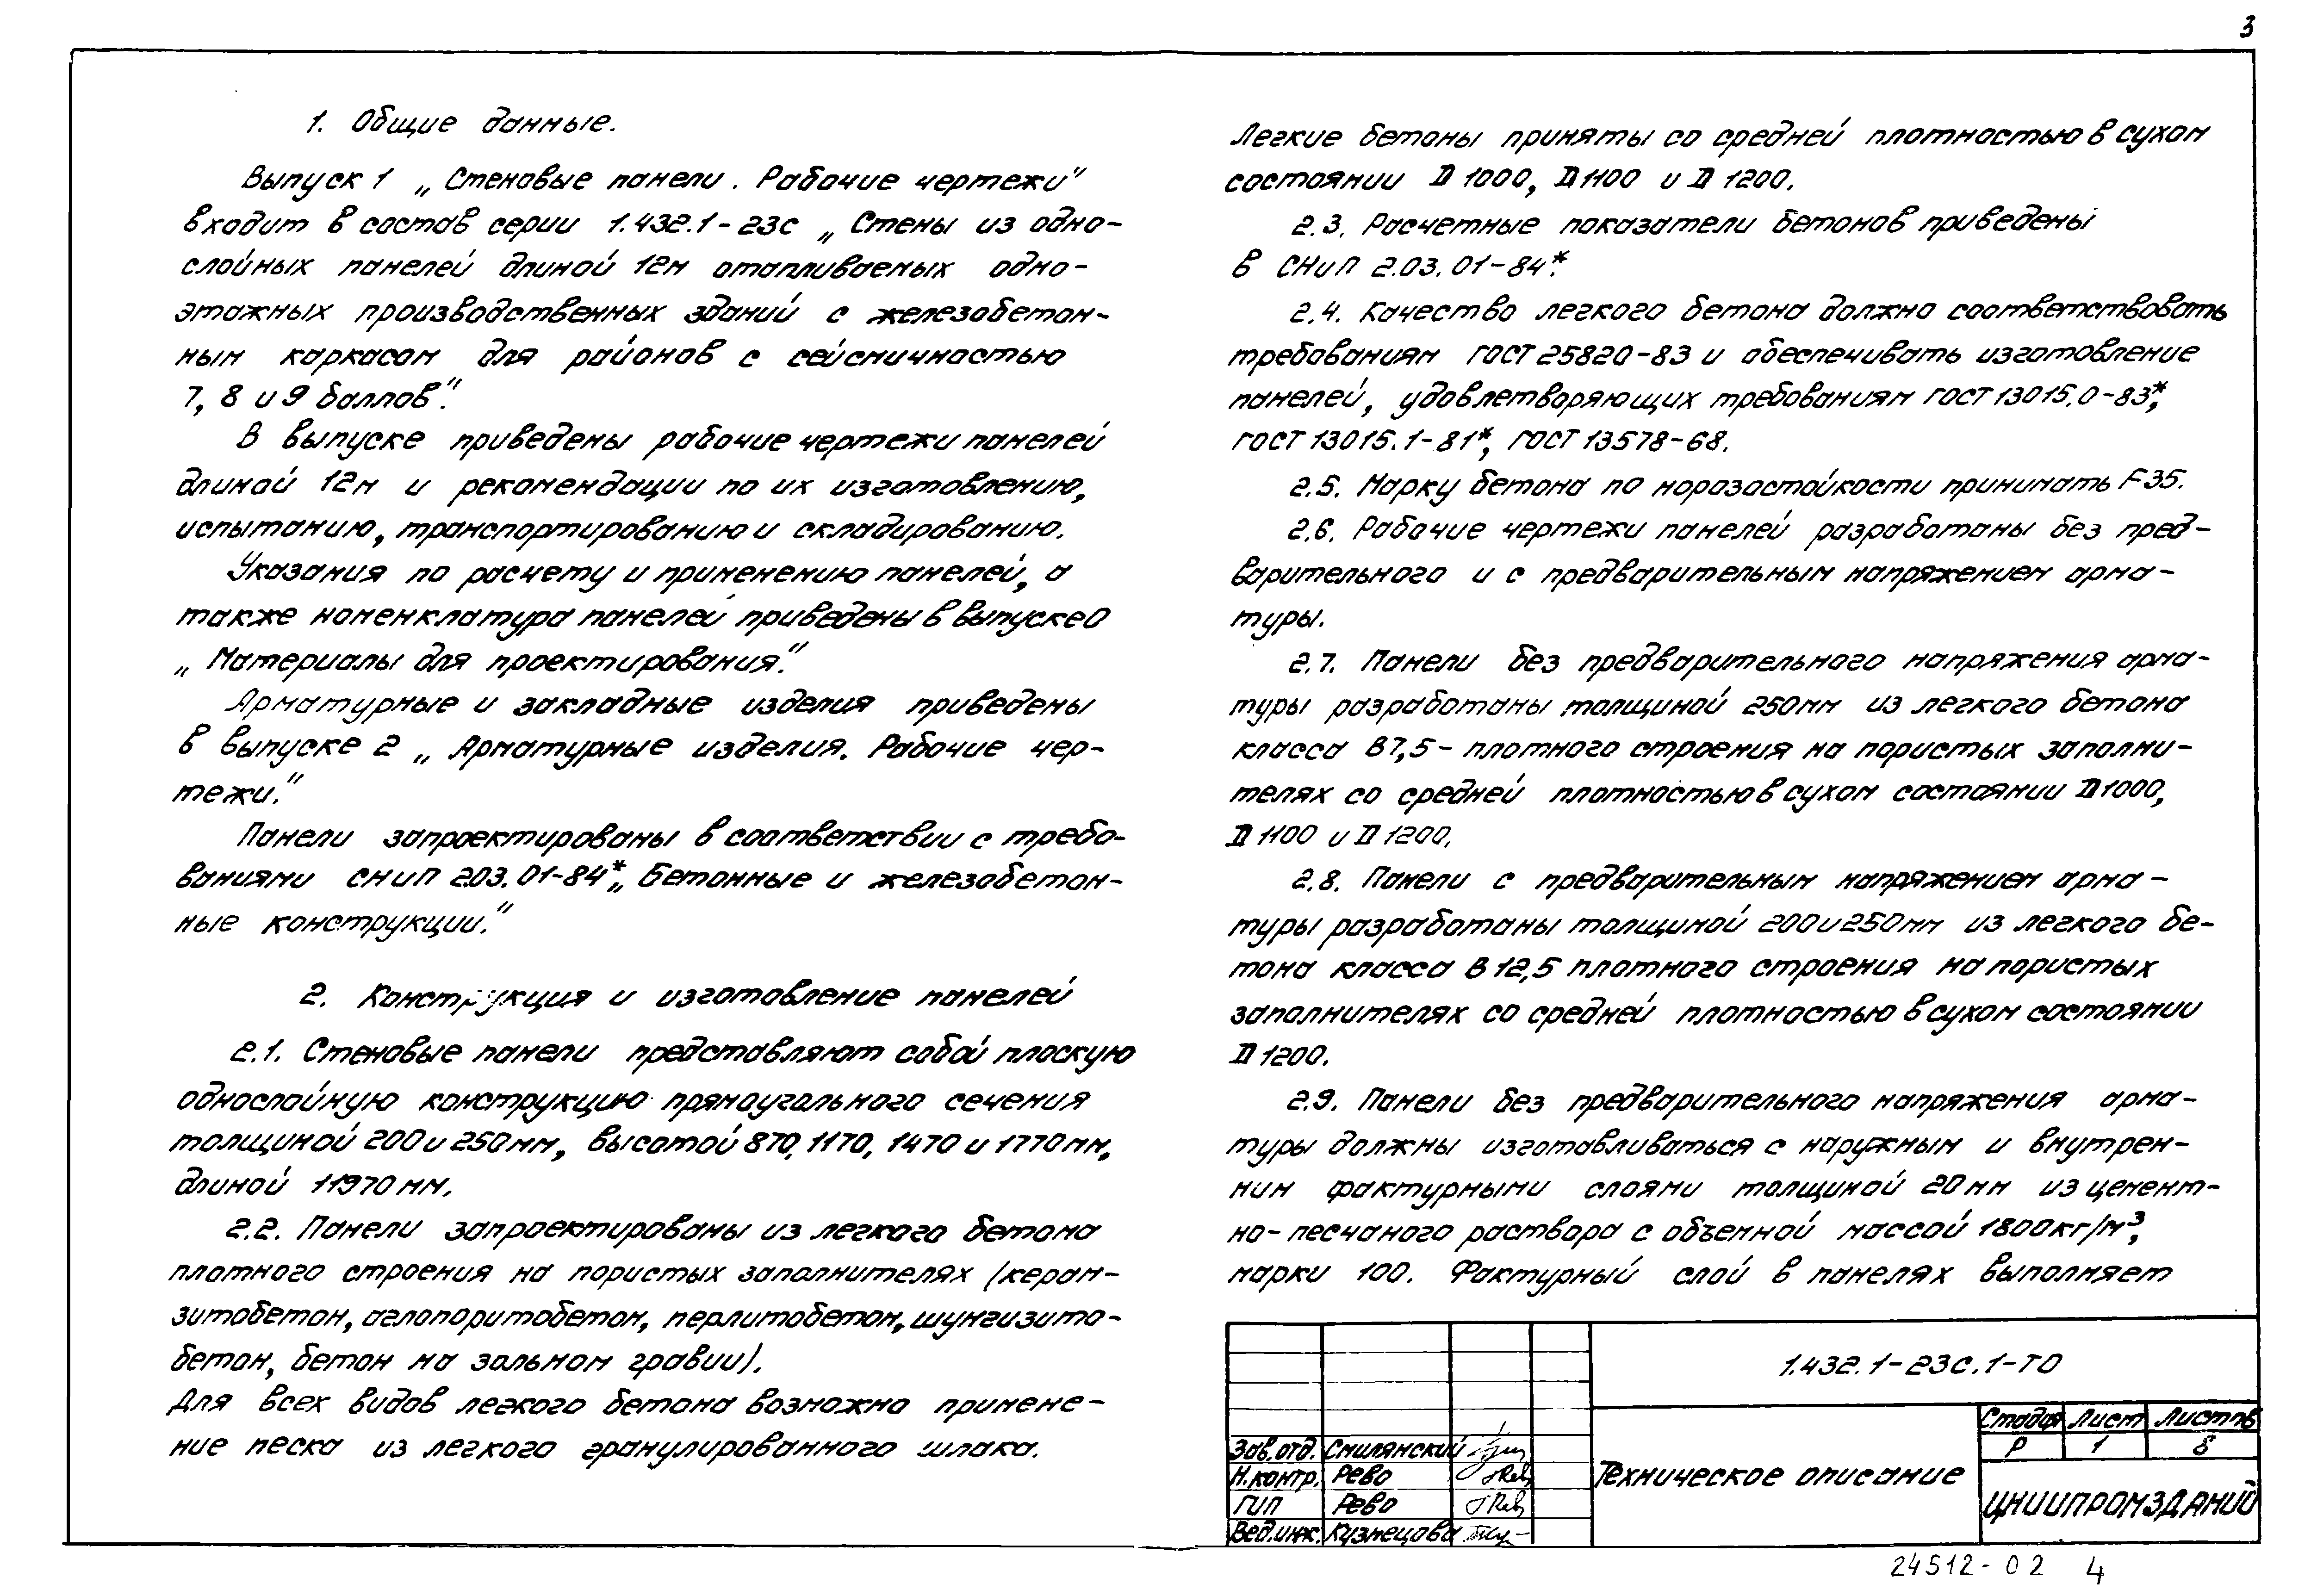 3
1. Общие данные.
Выпуск 1 „Стеновые панели. Рабочие чертежи"
входит в состав серии 1.432.1-23с „Стены из одно-
слойных панелей длиной 12м отапливаемых одно-
этажных производственных зданий с железобетон-
ным каркасом для районов с сейсмичностью
7, 8 и 9 баллов".
В выпуске приведены рабочие чертежи панелей
длиной 12м и рекомендации по их изготовлению,
испытанию, транспортированию и складированию.
Указания по расчету и применению панелей, а
также номенклатура панелей приведены в выпуске 0
„Материалы для проектирования".
Арматурные и закладные изделия приведены
в выпуске 2 „Арматурные изделия. Рабочие чер-
тежи."
Панели запроектированы в соответствии с требо-
ваниями СНиП 2.03.01-84* „Бетонные и железобетон-
ные конструкции."
2. Конструкция и изготовление панелей
2.1. Стеновые панели представляют собой плоскую
однослойную конструкцию прямоугольного сечения
толщиной 200 и 250мм, высотой 870, 1170, 1470 и 1770мм,
длиной 11970 мм.
2.2. Панели запроектированы из легкого бетона
плотного строения на пористых заполнителях (керам-
зитобетон, аглопоритобетон, перлитобетон, шунгизито-
бетон, бетон на зольном гравии).
Для всех видов легкого бетона возможно примене-
ние песка из легкого гранулированного шлака.
Легкие бетоны приняты со средней плотностью в сухом
состоянии D 1000, D 1100 и D 1200.
2.3. Расчетные показатели бетонов приведены
в СНиП 2.03.01-84*.
2.4. Качество легкого бетона должно соответствовать
требованиям ГОСТ 25820-83 и обеспечивать изготовление
панелей, удовлетворяющих требованиям ГОСТ 13015.0-83*,
ГОСТ 13015.1-81*, ГОСТ 13578-68.
2.5. Марку бетона по морозостойкости принимать F35.
2.6. Рабочие чертежи панелей разработаны без пред-
варительного и с предварительным напряжением арма-
туры.
2.7. Панели без предварительного напряжения арма-
туры разработаны толщиной 250мм из легкого бетона
класса В7,5 - плотного строения на пористых заполни-
телях со средней плотностью в сухом состоянии D 1000,
D 1100 и D 1200.
2.8. Панели с предварительным напряжением арма-
туры разработаны толщиной 200 и 250мм из легкого бе-
тона класса В 12,5 плотного строения на пористых
заполнителях со средней плотностью в сухом состоянии
D 1200.
2.9. Панели без предварительного напряжения арма-
туры должны изготавливаться с наружным и внутрен-
ним фактурными слоями толщиной 20 мм из цемент-
но-песчаного раствора с объемной массой 1800кг/м³,
марки 100. Фактурный слой в панелях выполняет
1.432.1-23с.1-ТО
Зав.отд. Смилянский
Н.контр. Рево
ГИП Рево
Вед.инж. Кузнецова
Техническое описание
Стадия Лист Листов
Р 1 8
ЦНИИПРОМЗДАНИЙ
24512-02 4